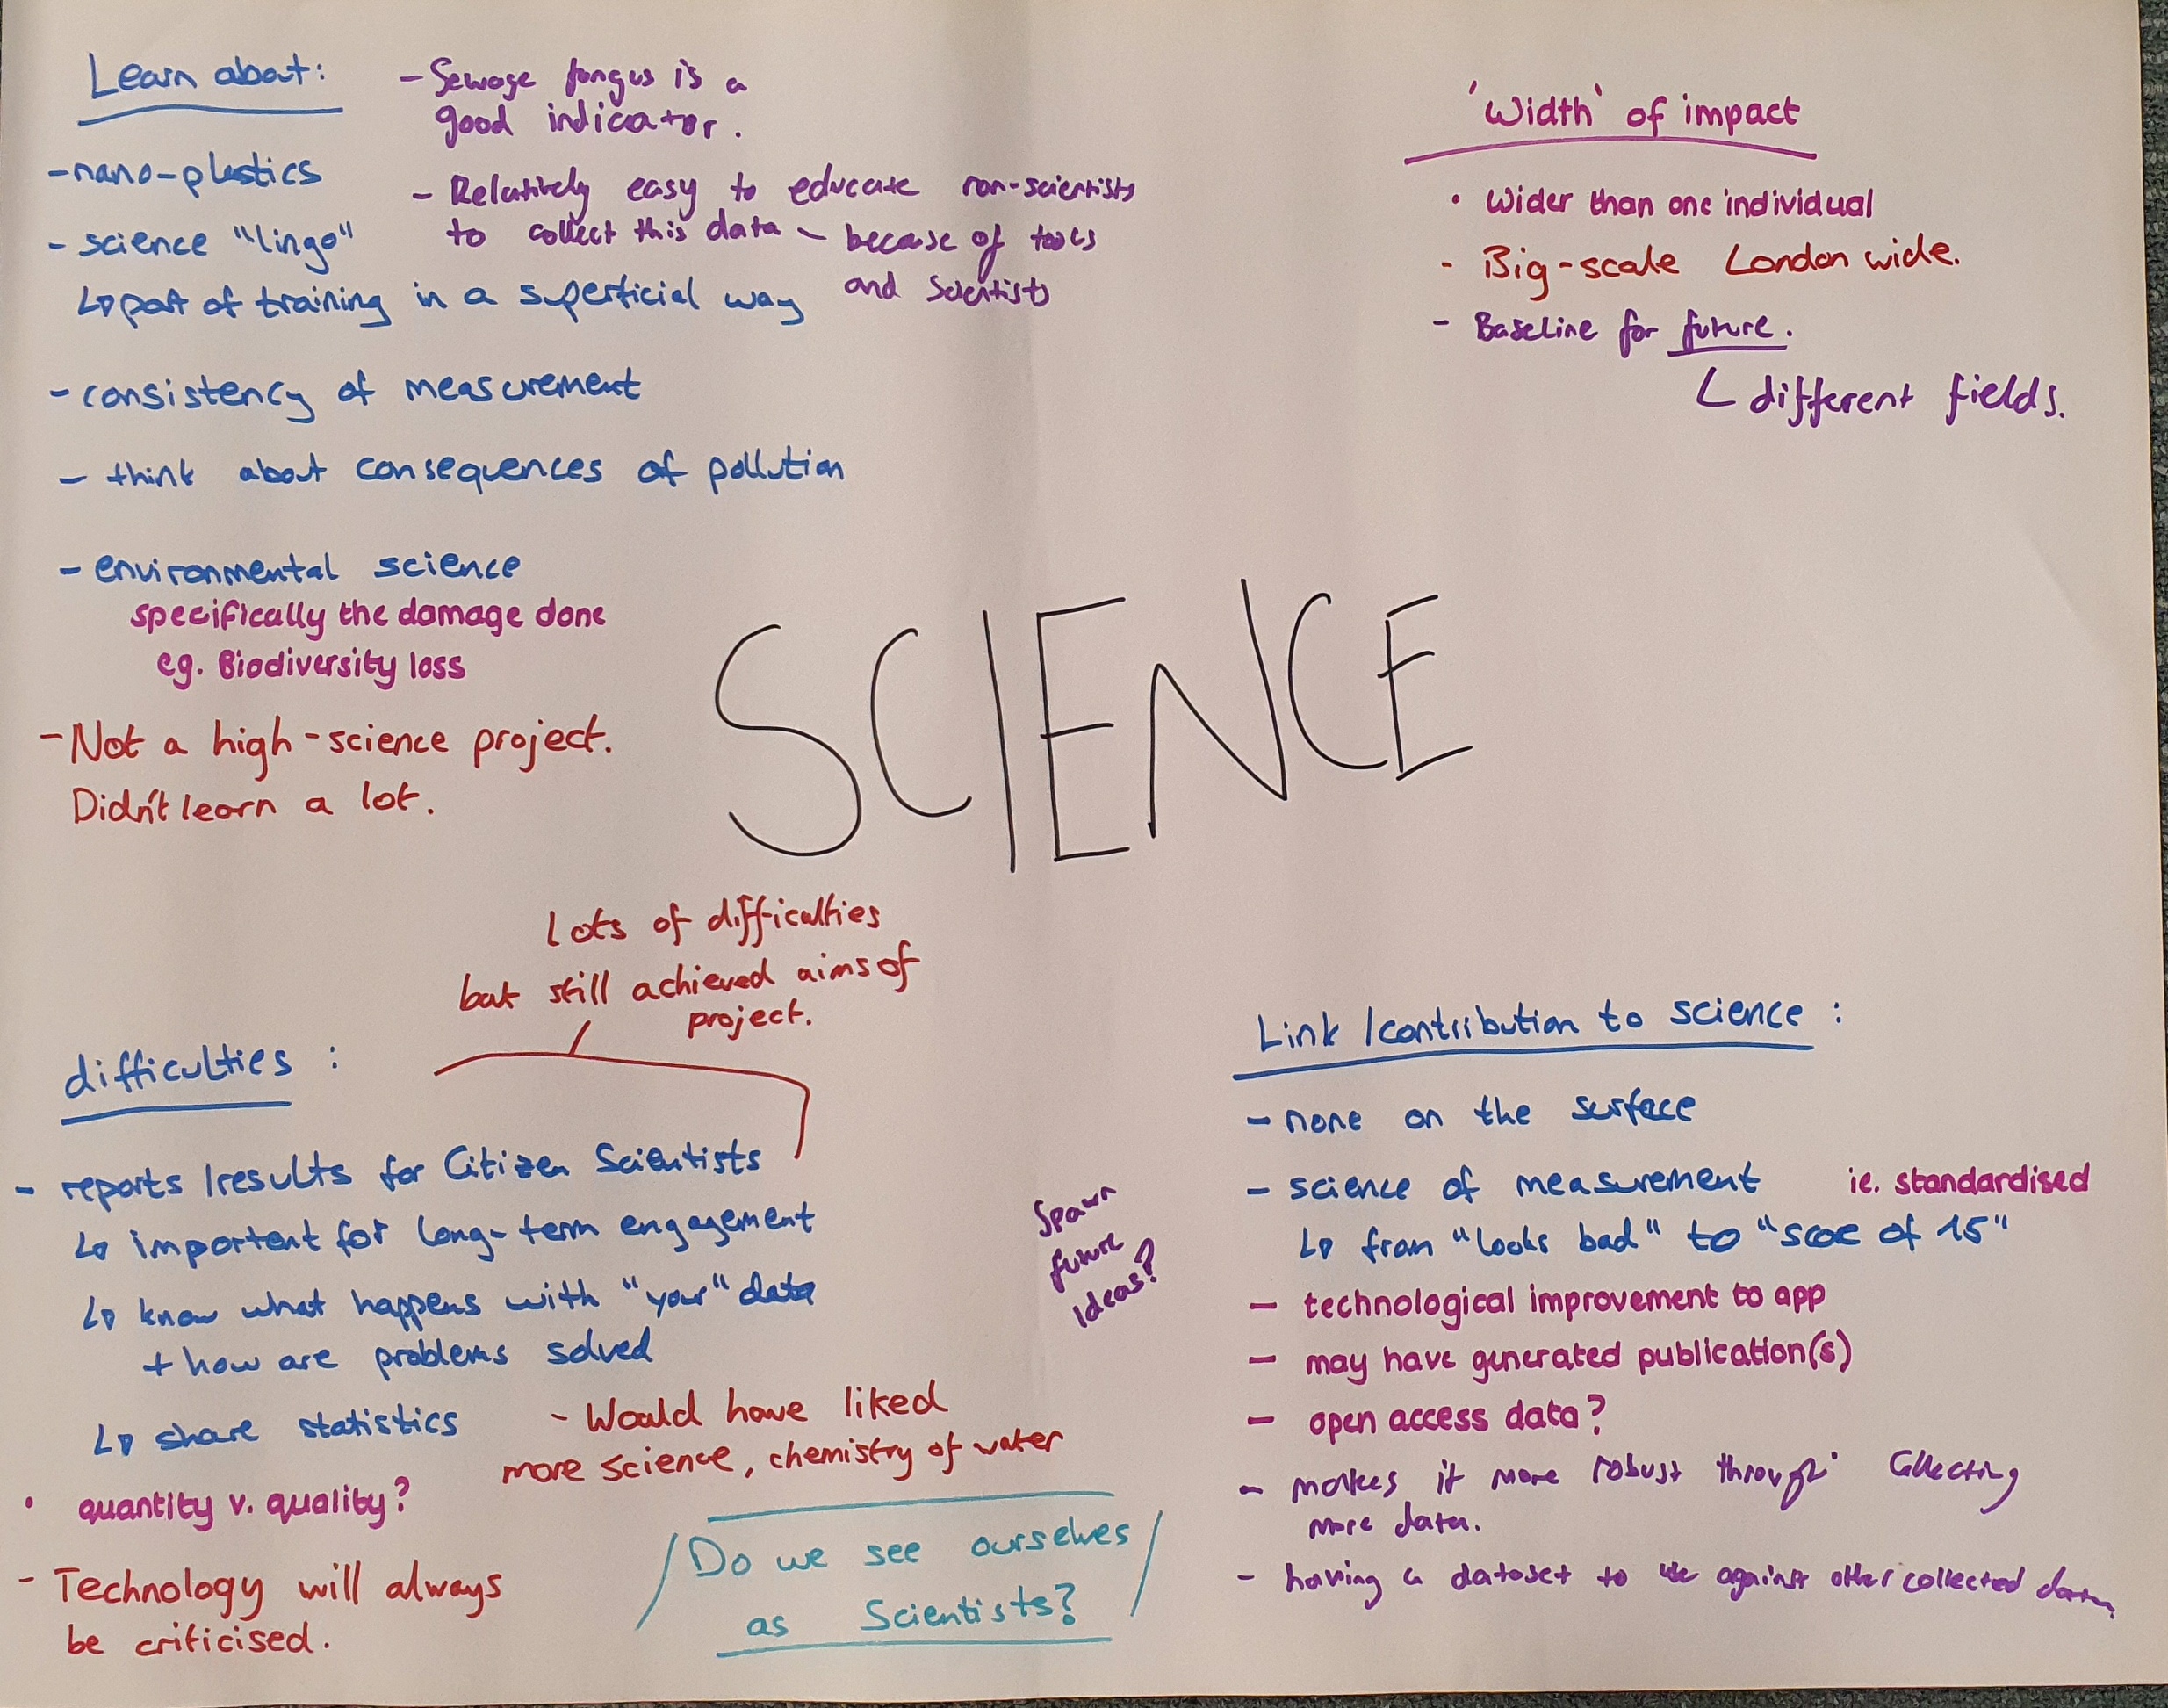 Learn about:
- nano-plastics
- science "lingo"
↳ part of training in a superficial way
- consistency of measurement
- think about consequences of pollution
- environmental science
specifically the damage done
eg. Biodiversity loss
- Not a high-science project.
Didn't learn a lot.
- Sewage fungus is a
good indicator.
- Relatively easy to educate non-scientists
to collect this data - because of tools
and Scientists
'Width' of impact
• Wider than one individual
- Big-scale London wide.
- Baseline for future.
↳ different fields.
SCIENCE
Lots of difficulties
but still achieved aims of
project.
difficulties :
- reports / results for Citizen Scientists
↳ important for long-term engagement
↳ know what happens with "your" data
+ how are problems solved
↳ share statistics
• quantity v. quality?
- Technology will always
be criticised.
- Would have liked
more science, chemistry of water
Do we see ourselves
as Scientists?
Spawn
future
Ideas?
Link / contribution to science :
- none on the surface
- science of measurement ie. standardised
↳ from "looks bad" to "score of 15"
- technological improvement to app
- may have generated publication(s)
- open access data?
- makes it more robust through Collecting
more data.
- having a dataset to use against other collected data